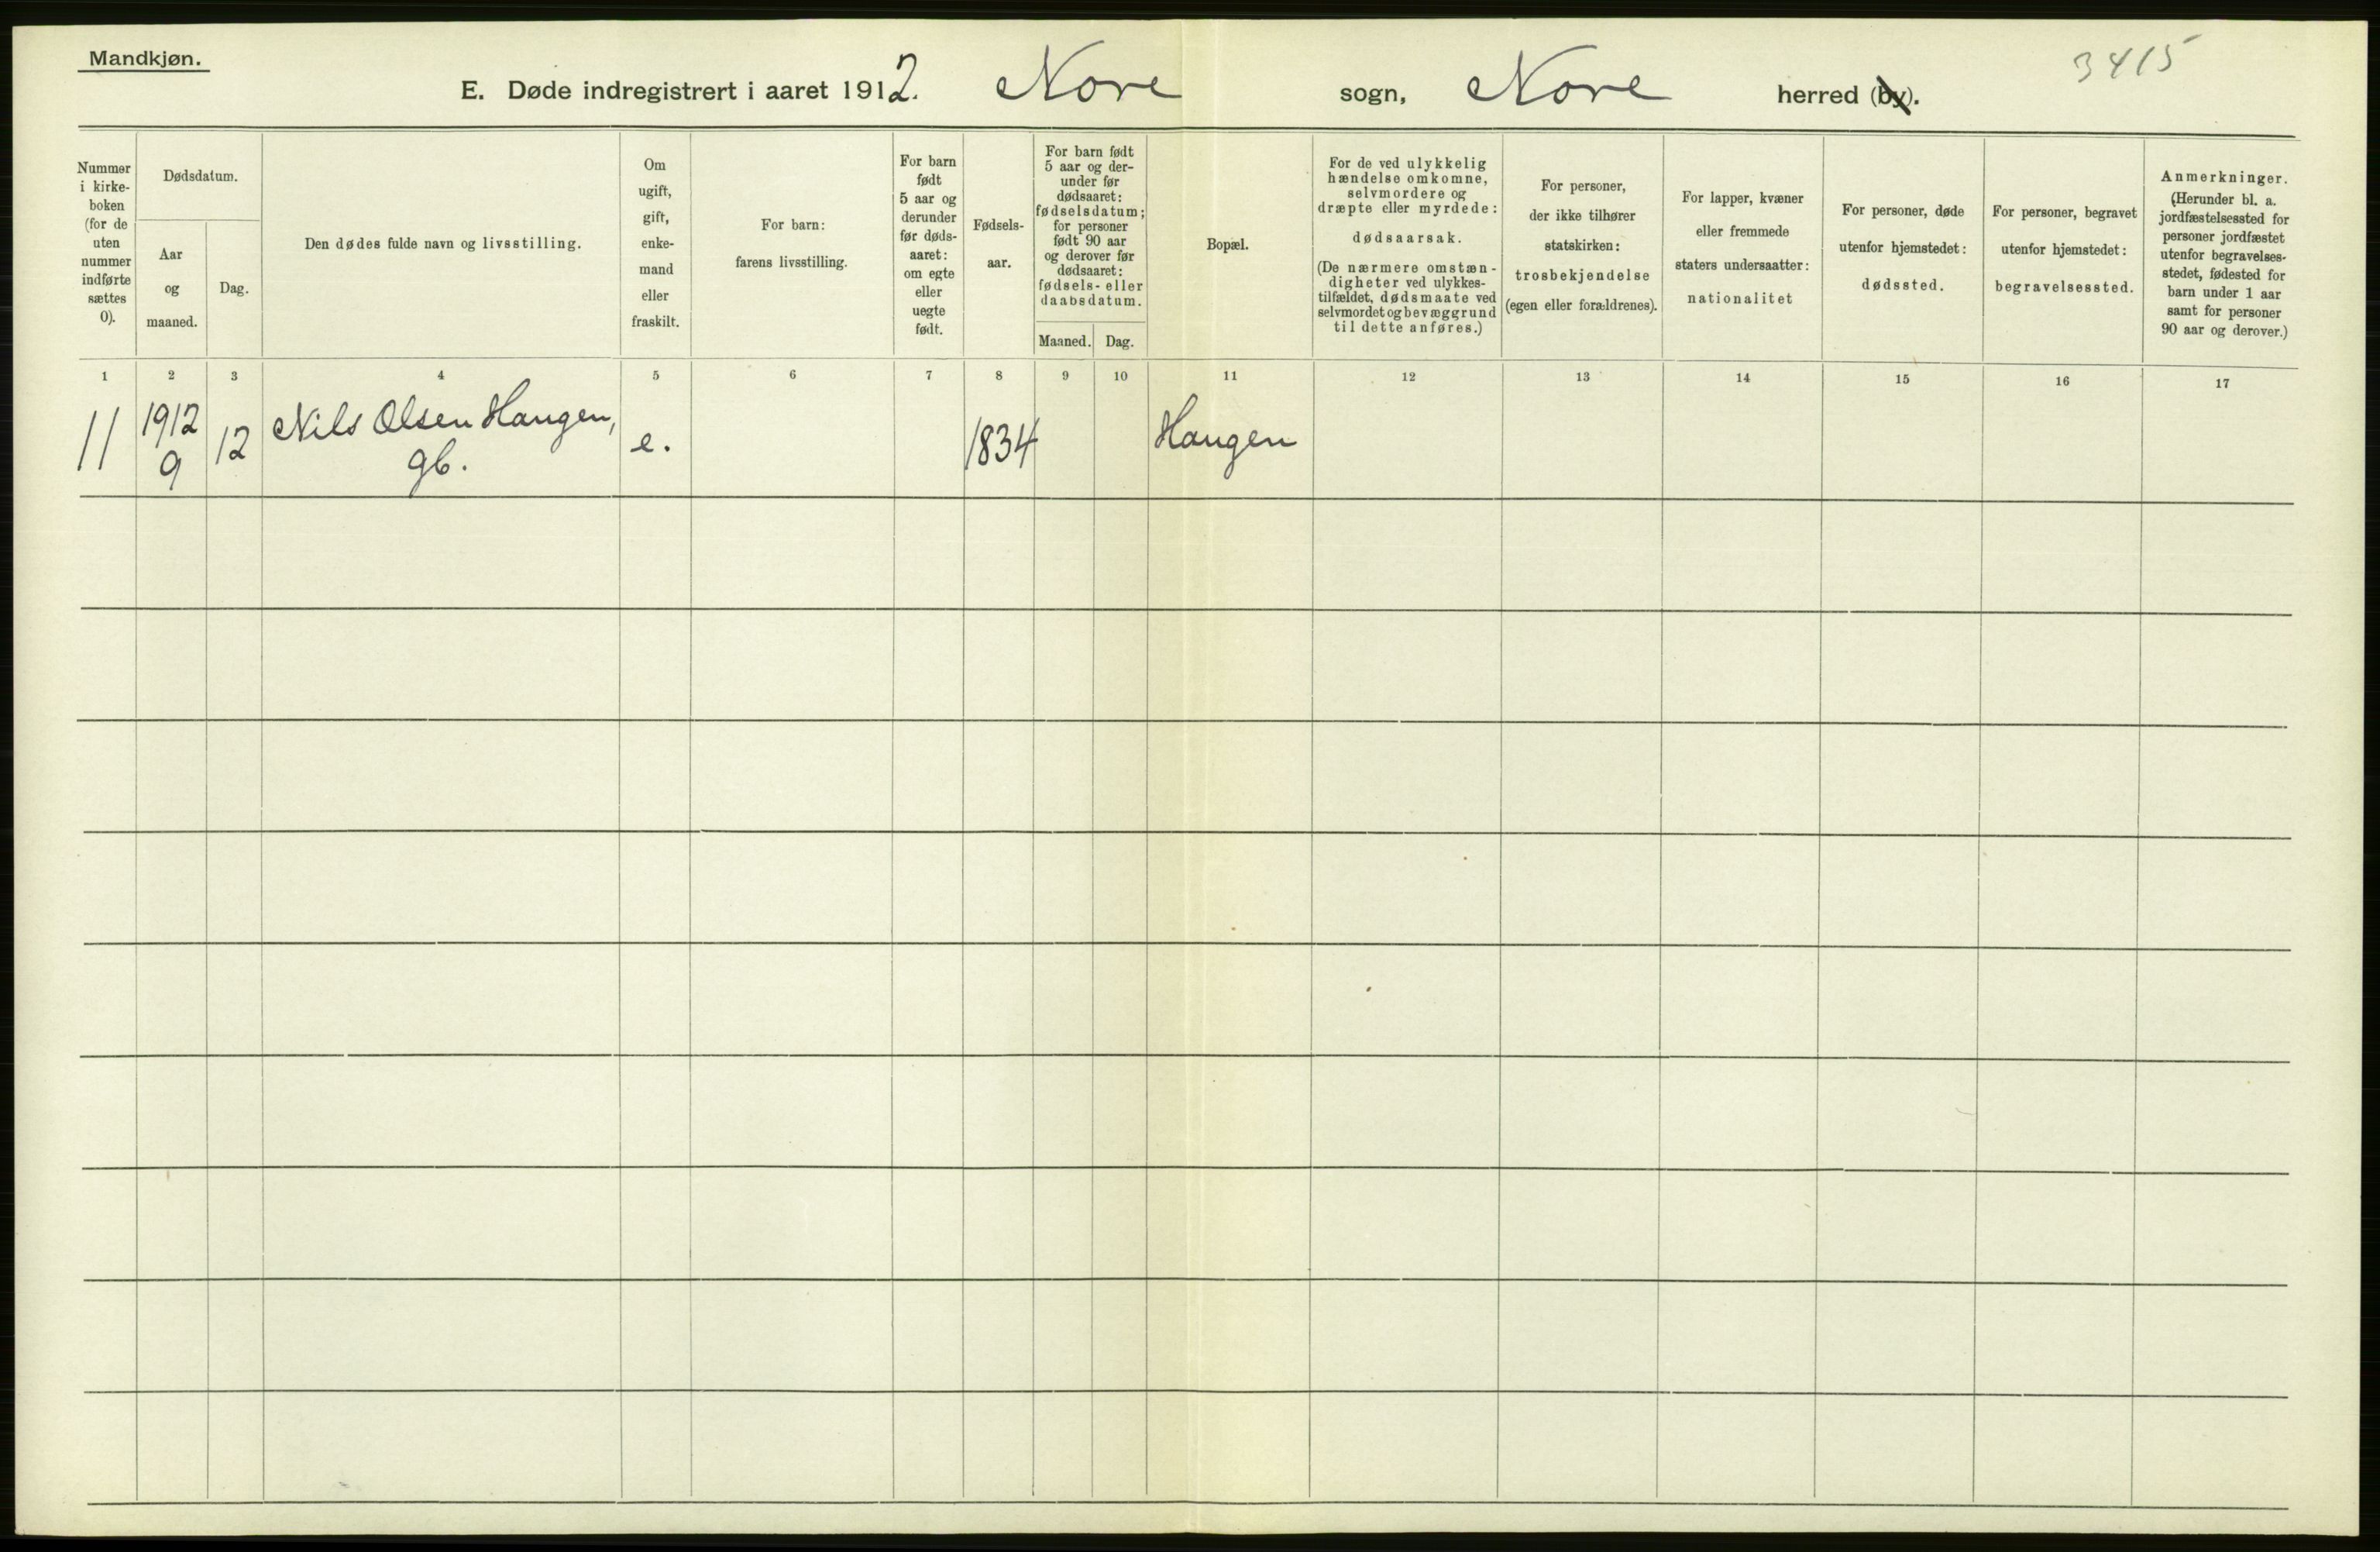 Mandkjøn.
3415
E. Døde indregistrert i aaret 1912. Nore sogn, Nore herred (by).
Nummer
i kirke-
boken
(for de
uten
nummer
indførte
sættes
0).
Dødsdatum.
Aar
og
maaned.
Dag.
Den dødes fulde navn og livsstilling.
Om
ugift,
gift,
enke-
mand
eller
fraskilt.
For barn:
farens livsstilling.
For barn
født
5 aar og
derunder
før døds-
aaret:
om egte
eller
uegte
født.
Fødsels-
aar.
For barn født
5 aar og der-
under før
dødsaaret:
fødselsdatum;
for personer
født 90 aar
og derover før
dødsaaret:
fødsels- eller
daabsdatum.
Maaned. Dag.
Bopæl.
For de ved ulykkelig
hændelse omkomne,
selvmordere og
dræpte eller myrdede:
dødsaarsak.
(De nærmere omstæn-
digheter ved ulykkes-
tilfældet, dødsmaate ved
selvmordet og bevæggrund
til dette anføres.)
For personer,
der ikke tilhører
statskirken:
trosbekjendelse
(egen eller forældrenes).
For lapper, kvæner
eller fremmede
staters undersaatter:
nationalitet
For personer, døde
utenfor hjemstedet:
dødssted.
For personer, begravet
utenfor hjemstedet:
begravelsessted.
Anmerkninger.
(Herunder bl. a.
jordfæstelsessted for
personer jordfæstet
utenfor begravelses-
stedet, fødested for
barn under 1 aar
samt for personer
90 aar og derover.)
1 2 3 4 5 6 7 8 9 10 11 12 13 14 15 16 17
11 1912 12 Nils Olsen Haugen, e. 1834 Haugen
9 gb.